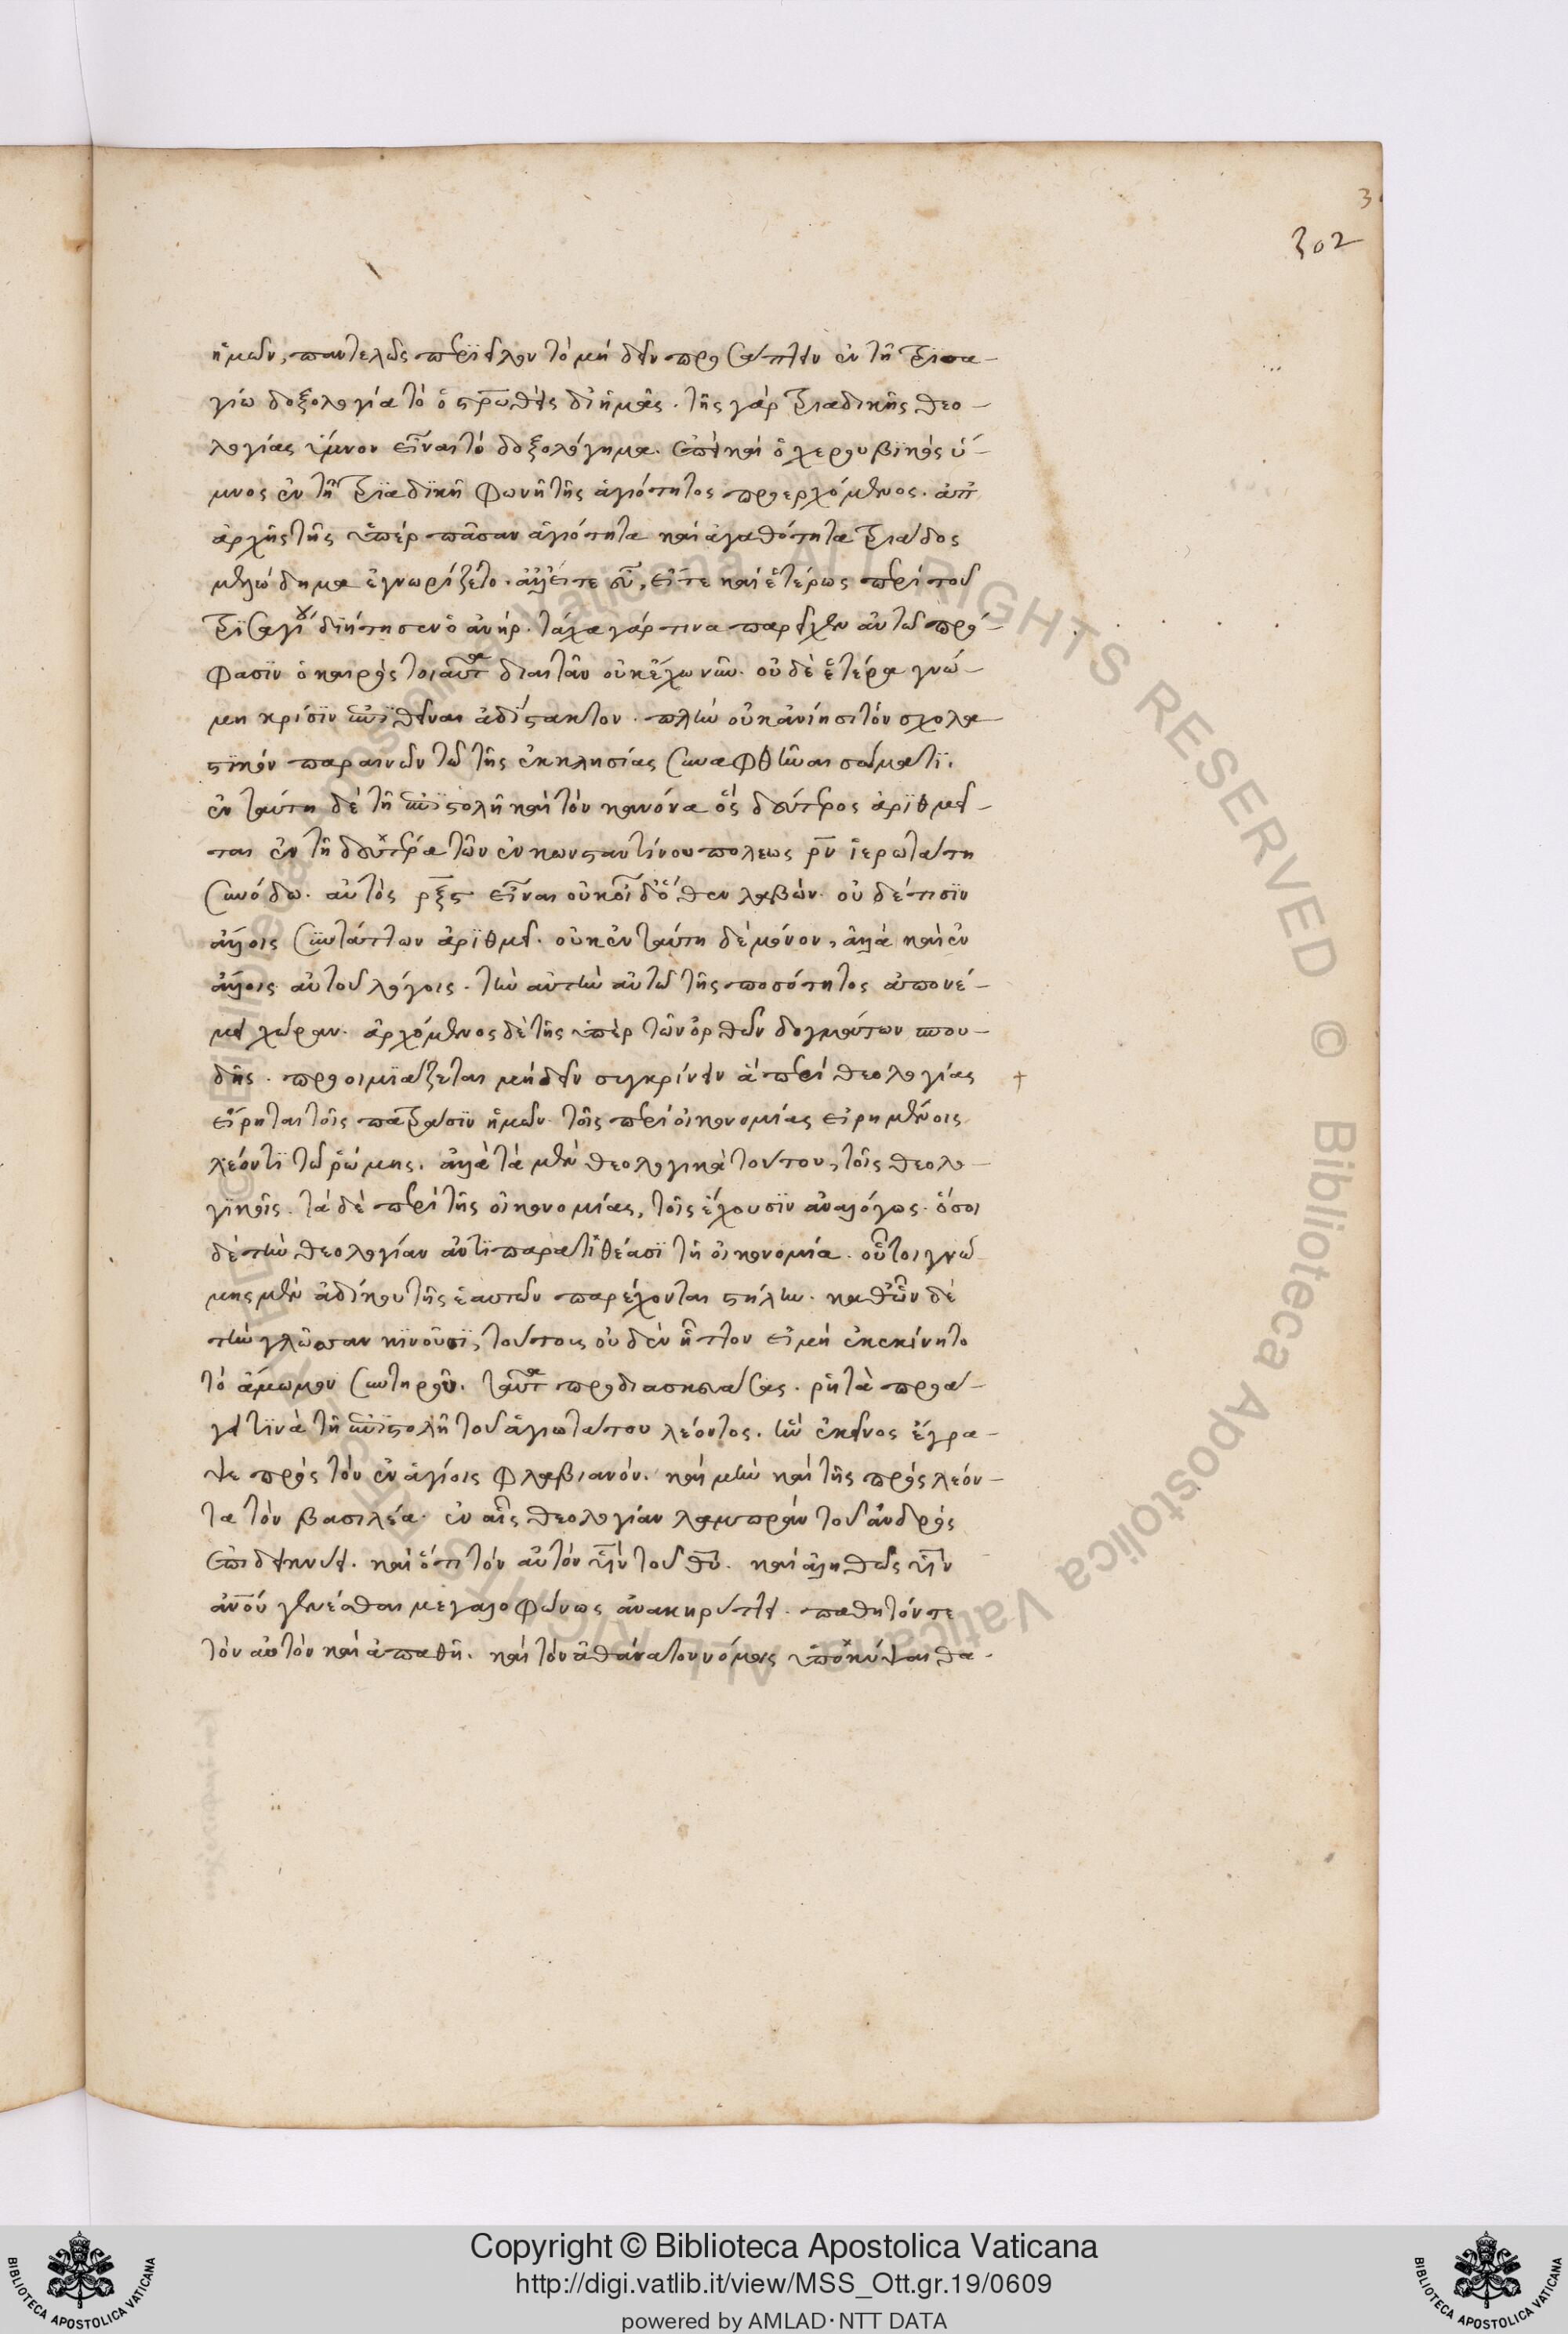 302
ἡμῶν, παντελῶς περιεῖλον τὸ μὴ δεῖν προσάπτειν ἐν τῇ τρισα-
γίω δοξολογία τὸ ὁ στρωθεὶς δι' ἡμᾶς. τῆς γὰρ τριαδικῆς θεο-
λογίας ὕμνον εἶναι τὸ δοξολόγημα. ἐπεὶ καὶ ὁ χερουβικὸς ὕ-
μνος ἐν τῇ τριαδϊκῇ φωνῇ τῆς ἁγιότητος προερχόμενος. ἀπ
ἀρχῆς τῆς ὑπὲρ πᾶσαν ἁγιότητα καὶ ἀγαθότητα τριάδος
μελώδημα ἐγνωρίζετο. ἀλλ' εἴτε οὖν, εἴτε καὶ ἑτέρως περὶ τοῦ
τρισαγίου διήτησεν ὁ ἀνήρ. τάχα γάρ τινα παρεῖχεν αὐτῶ πρό-
φασϊν ὁ καιρὸς τοιαῦτα διαιτᾶν οὐκ ἔχω νῦν. οὐδὲ ἑτέρα γνώ-
μη κρίσϊν ἐπιθεῖναι ἀδίστακτον. πλὴν οὐκ ἀνίησι τὸν σχολα-
στϊκὸν παραινῶν τῶ τῆς ἐκκλησίας συναφθῆναι σώματϊ.
ἐν ταύτη δὲ τῇ ἐπιστολῇ καὶ τὸν κανόνα ὃς δεύτερος ἀριθμεῖ-
ται ἐν τῇ δευτέρα τῶν ἐν κωνσταντίνου πόλεως ρν ἱερωτάτη
συνόδω. αὐτὸς ρξς εἶναι οὐκ οἶδ' ὅθεν λαβών. οὐδέ τισϊν
ἄλλοις συντάττων ἀριθμεῖ. οὐκ ἐν ταύτη δὲ μόνον, ἀλλὰ καὶ ἐν
ἄλλοις αὐτοῦ λόγοις. τὴν αὐτὴν αὐτῶ τῆς ποσότητος ἀπονέ-
μει χώραν. ἀρχόμενος δὲ τῆς ὑπὲρ τῶν ὀρθῶν δογμάτων σπου-
δῆς. προοιμϊάζεται μὴ δεῖν συγκρίνειν ἃ περὶ θεολογίας
εἴρηται τοῖς πατράσϊν ἡμῶν. τοῖς περὶ οἰκονομίας εἰρημένοις
λέοντϊ τῶ ῥώμης. ἀλλὰ τὰ μὲν θεολογικὰ τούτου, τοῖς θεολο-
γϊκοῖς. τὰ δὲ περὶ τῆς οἰκονομίας, τοῖς ἔχουσϊν ἀναλόγως. ὅσοι
δὲ τὴν θεολογίαν ἀντϊπαρατϊθέασϊ τῇ οἰκονομία. οὗτοι γνώ-
μης μὲν ἀδίκου τῆς ἑαυτῶν παρέχονται στήλην. καθ' ὧν δὲ
τὴν γλῶτταν κϊνοῦσϊ, τούτοις οὐδὲν ἧττον εἰ μὴ ἐκεκίνητο
τὸ ἄμωμον συντηροῦν. ταῦτα προδιασκευάσας. ῥητὰ προά-
γει τϊνὰ τῇ ἐπιστολῇ τοῦ ἁγιωτάτου λέοντος. ἣν ἐκεῖνος ἔγρα-
ψε πρὸς τὸν ἐν ἁγίοις φλαβιανόν. καὶ μὴν καὶ τῆς πρὸς λέον-
τα τὸν βασιλέα. ἐν αἷς θεολογίαν λαμπρὰν τοῦ ἀνδρὸς
ἐπιδείκνυει. καὶ ὅτι τὸν αὐτὸν υἱὸν τοῦ θυ. καὶ ἀληθῶς υἱὸν
ανου γενέσθαι μεγαλοφώνως ἀνακηρύττει. παθητόν τε
τὸν αὐτὸν καὶ ἀπαθῆ. καὶ τὸν ἀθάνατον νόμοις ὑποκύψαι θα-
Copyright © Biblioteca Apostolica Vaticana
http://digi.vatlib.it/view/MSS_Ott.gr.19/0609
powered by AMLAD·NTT DATA